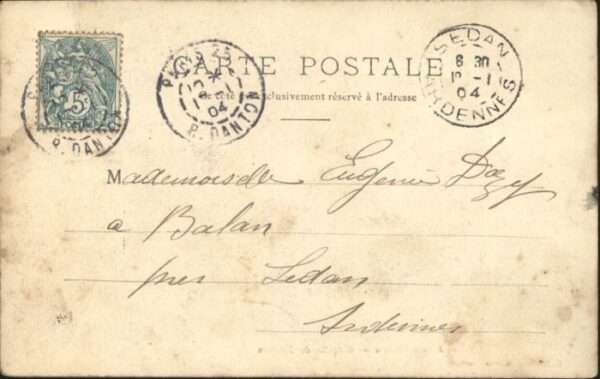 CARTE POSTALE
Ce côté exclusivement réservé à l'adresse
5
PARIS 25
04
R. DANTON
R. DANTON
SEDAN
8 30
12 -1
04
ARDENNES
Mademoiselle Eugénie Dazy
a Balan
près Sedan
Ardennes